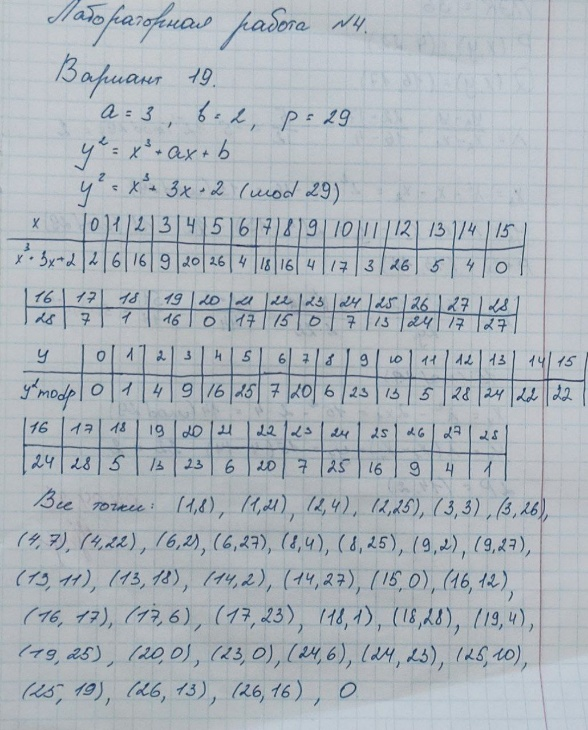 Лабораторная работа №4.
Вариант 19.
a = 3, b = 2, p = 29
y² = x³ + ax + b
y² = x³ + 3x + 2 (mod 29)
x | 0 | 1 | 2 | 3 | 4 | 5 | 6 | 7 | 8 | 9 | 10 | 11 | 12 | 13 | 14 | 15
x³+3x+2 | 2 | 6 | 16 | 9 | 20 | 26 | 4 | 18 | 16 | 4 | 17 | 3 | 26 | 5 | 4 | 0
16 | 17 | 18 | 19 | 20 | 21 | 22 | 23 | 24 | 25 | 26 | 27 | 28
28 | 7 | 1 | 16 | 0 | 17 | 15 | 0 | 7 | 13 | 24 | 17 | 27
y | 0 | 1 | 2 | 3 | 4 | 5 | 6 | 7 | 8 | 9 | 10 | 11 | 12 | 13 | 14 | 15
y² mod p | 0 | 1 | 4 | 9 | 16 | 25 | 7 | 20 | 6 | 23 | 13 | 5 | 28 | 24 | 22 | 22
16 | 17 | 18 | 19 | 20 | 21 | 22 | 23 | 24 | 25 | 26 | 27 | 28
24 | 28 | 5 | 13 | 23 | 6 | 20 | 7 | 25 | 16 | 9 | 4 | 1
Все точки: (1,8), (1,21), (2,4), (2,25), (3,3), (3,26),
(4,7), (4,22), (6,2), (6,27), (8,4), (8,25), (9,2), (9,27),
(13,11), (13,18), (14,2), (14,27), (15,0), (16,12),
(16,17), (17,6), (17,23), (18,1), (18,28), (19,4),
(19,25), (20,0), (23,0), (24,6), (24,23), (25,10),
(25,19), (26,13), (26,16), O